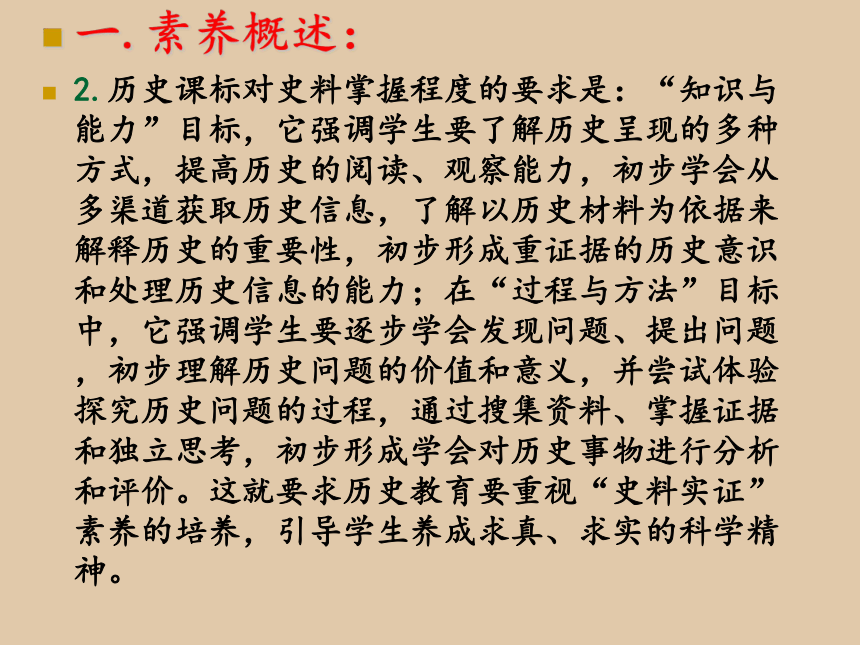 一.素养概述：
2.历史课标对史料掌握程度的要求是：“知识与
能力”目标，它强调学生要了解历史呈现的多种
方式，提高历史的阅读、观察能力，初步学会从
多渠道获取历史信息，了解以历史材料为依据来
解释历史的重要性，初步形成重证据的历史意识
和处理历史信息的能力；在“过程与方法”目标
中，它强调学生要逐步学会发现问题、提出问题
，初步理解历史问题的价值和意义，并尝试体验
探究历史问题的过程，通过搜集资料、掌握证据
和独立思考，初步形成学会对历史事物进行分析
和评价。这就要求历史教育要重视“史料实证”
素养的培养，引导学生养成求真、求实的科学精
神。